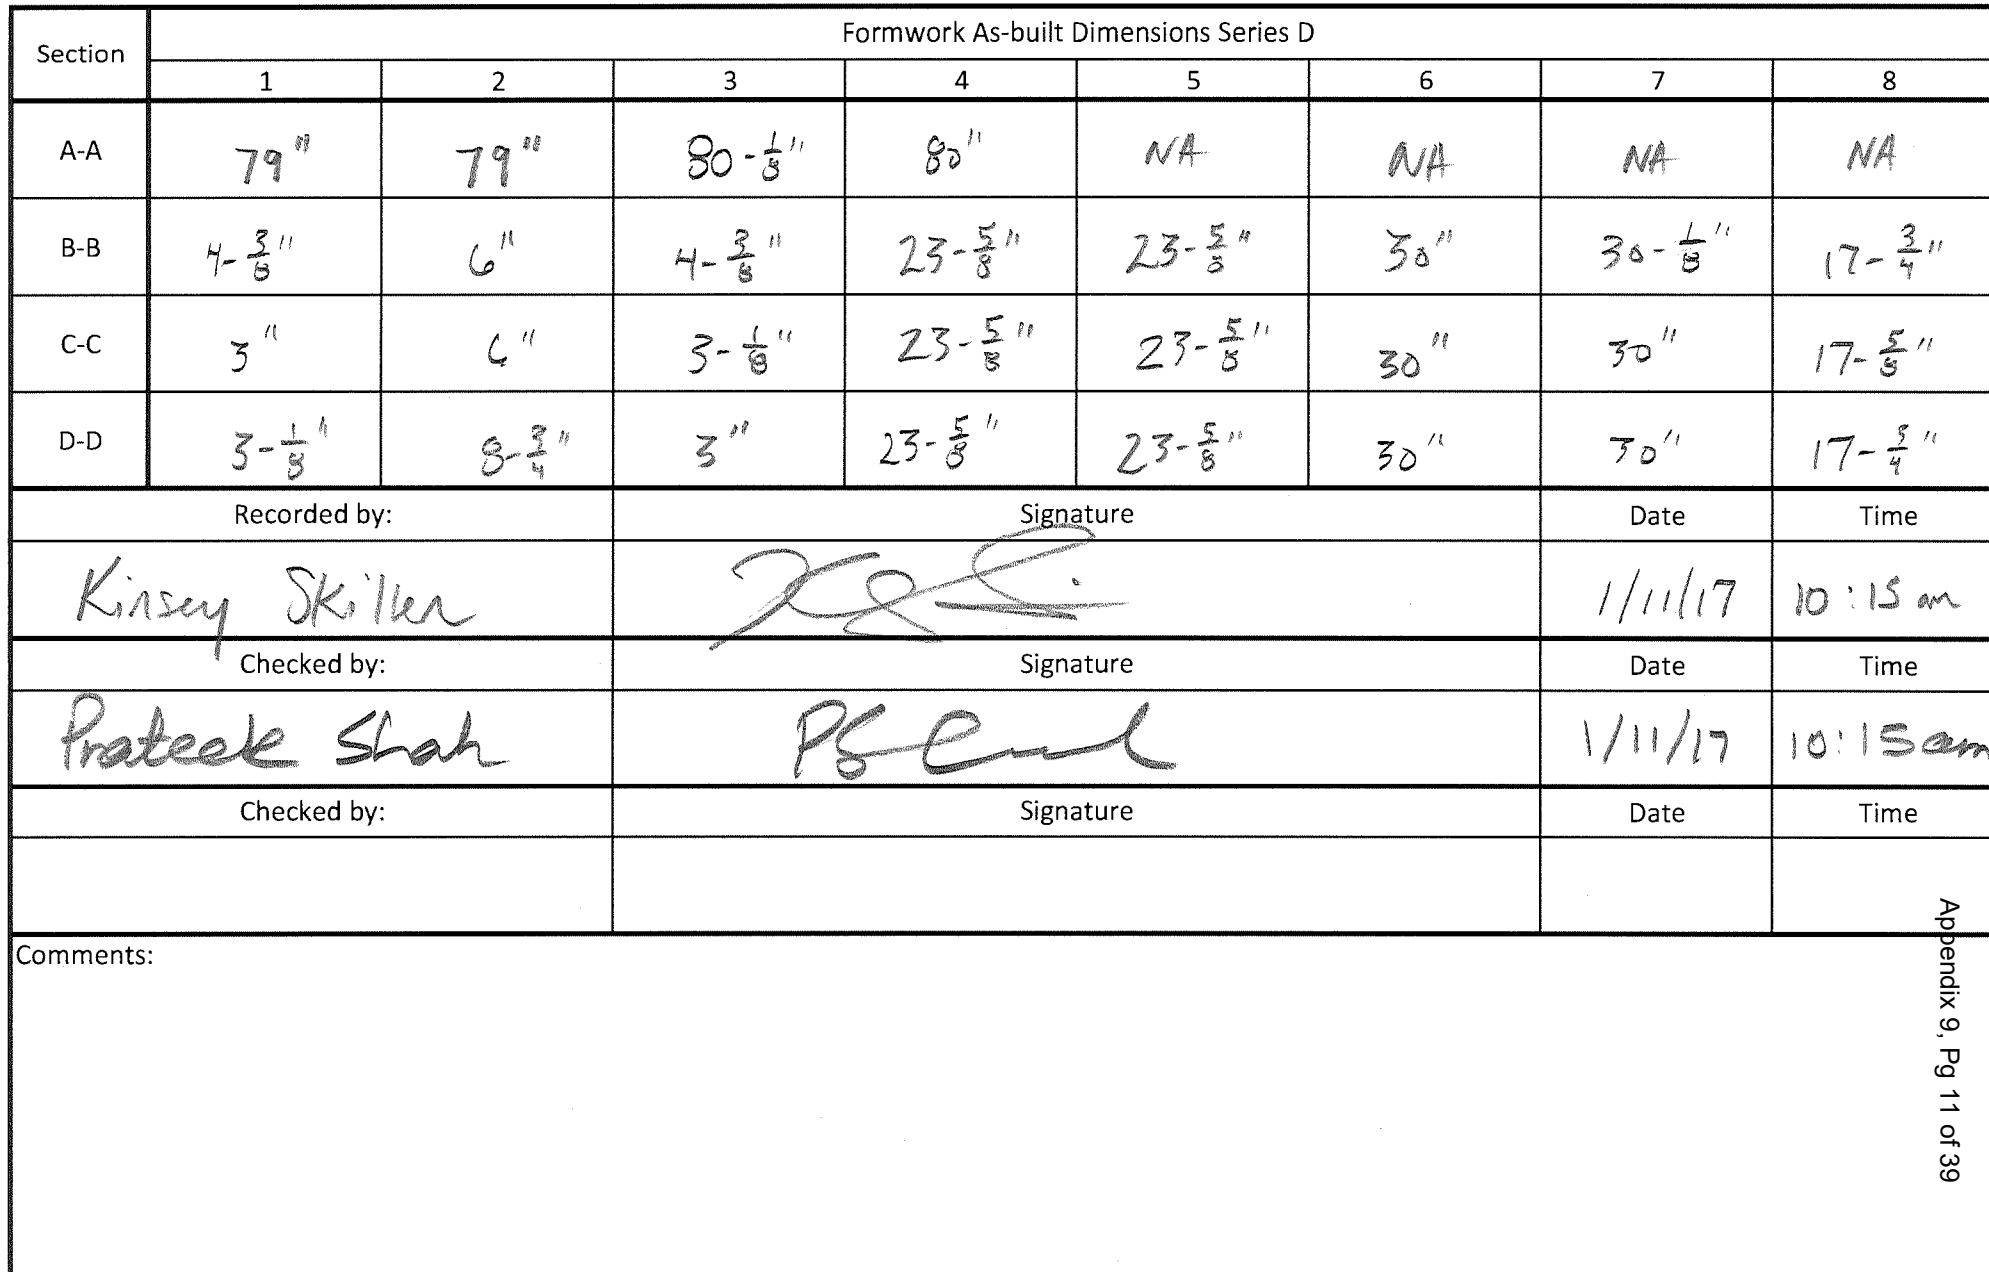 Formwork As-built Dimensions Series D
Section 1 2 3 4 5 6 7 8
A-A 79" 79" 80-1/8" 80" NA NA NA NA
B-B 4-3/8" 6" 4-3/8" 23-5/8" 23-5/8" 30" 30-1/8" 17-3/4"
C-C 3" 6" 3-1/8" 23-5/8" 23-5/8" 30" 30" 17-5/8"
D-D 3-1/8" 8-3/4" 3" 23-5/8" 23-5/8" 30" 30" 17-3/4"
Recorded by: Signature Date Time
Kinsey Skillen 1/11/17 10:15 am
Checked by: Signature Date Time
Prateek Shah 1/11/17 10:15am
Checked by: Signature Date Time
Comments:
Appendix 9, Pg 11 of 39